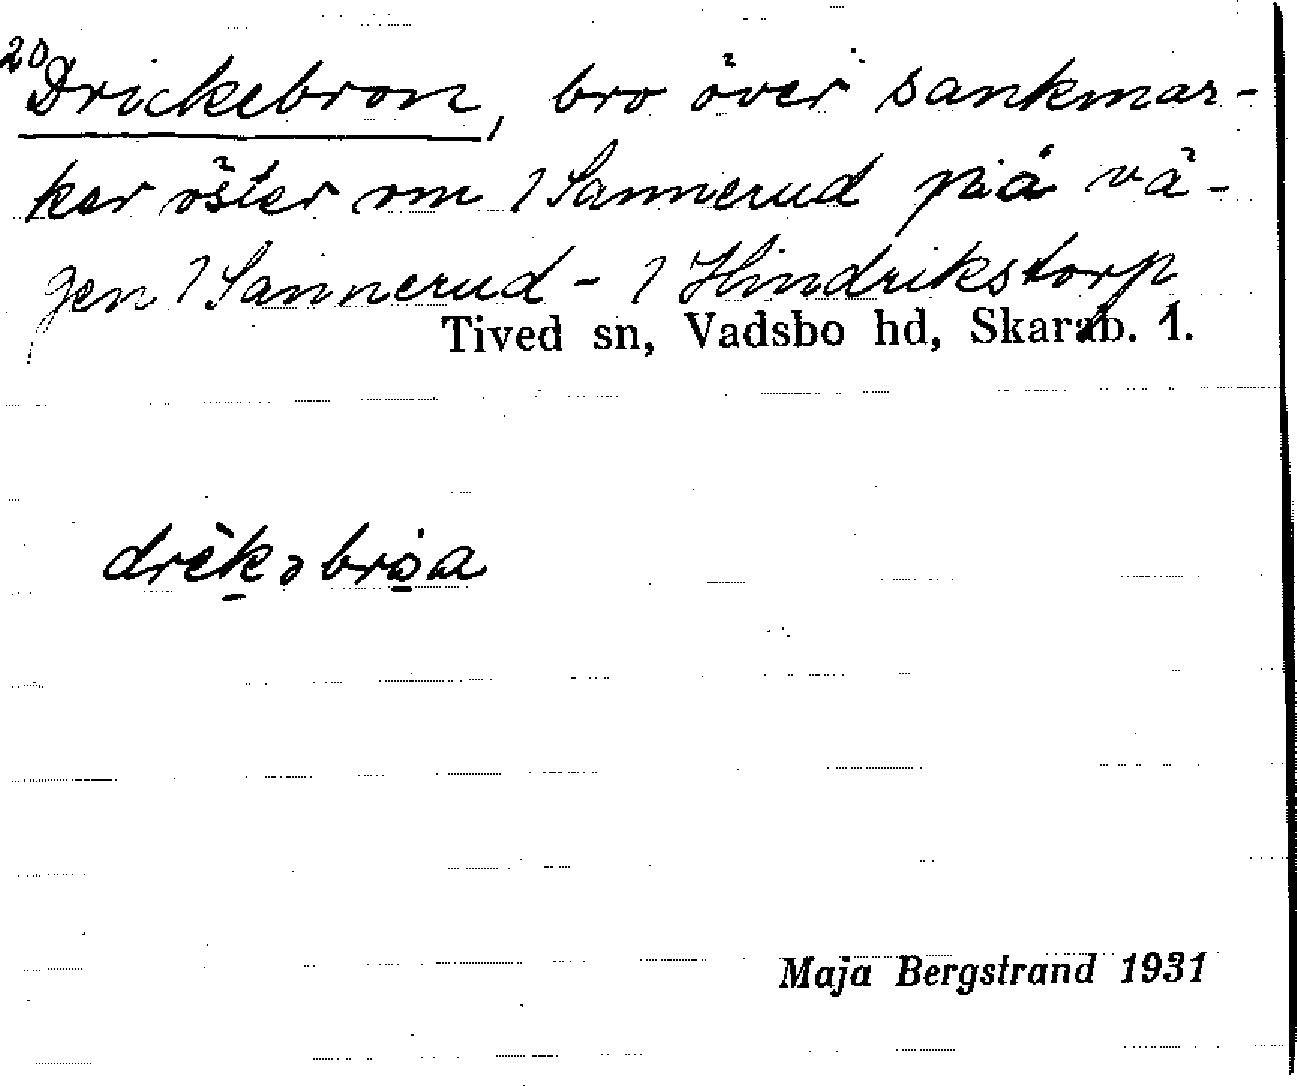 20 Drickebron, bro över sankmar-
ker öster om 1 Sannerud på vä-
gen 1 Sannerud - 1 Hindrikstorp
Tived sn, Vadsbo hd, Skarab. 1.
drèkəbròa
Maja Bergstrand 1931